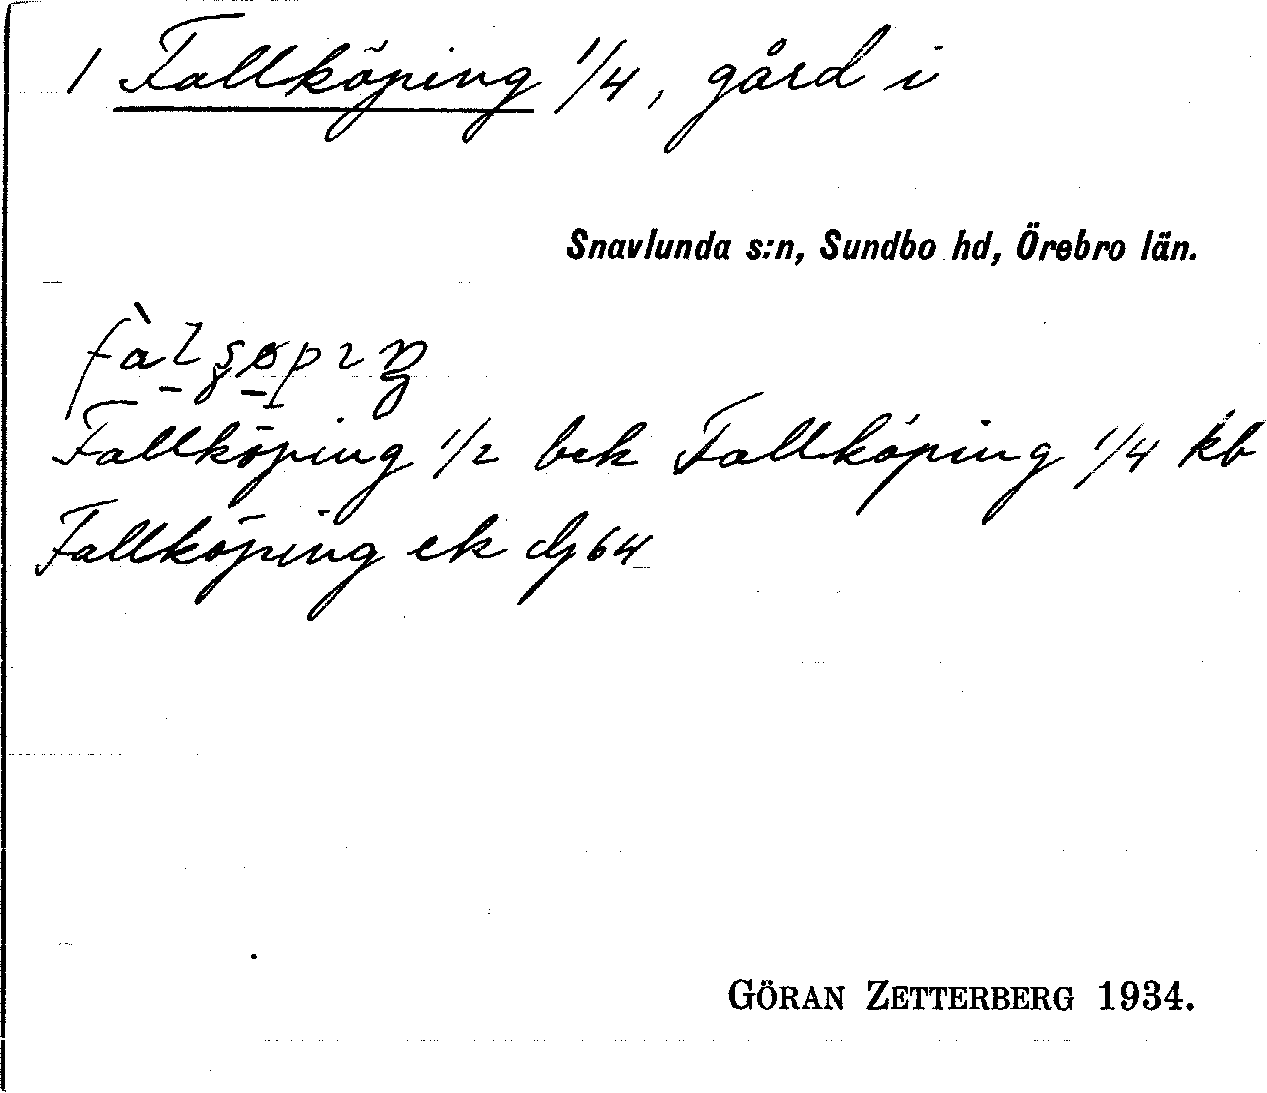 1 Fallköping 1/4, gård i
Snavlunda s:n, Sundbo hd, Örebro län.
Fallköping 1/2 bek Fallköping 1/4 kb
Fallköping ek dj 64
GÖRAN ZETTERBERG 1934.